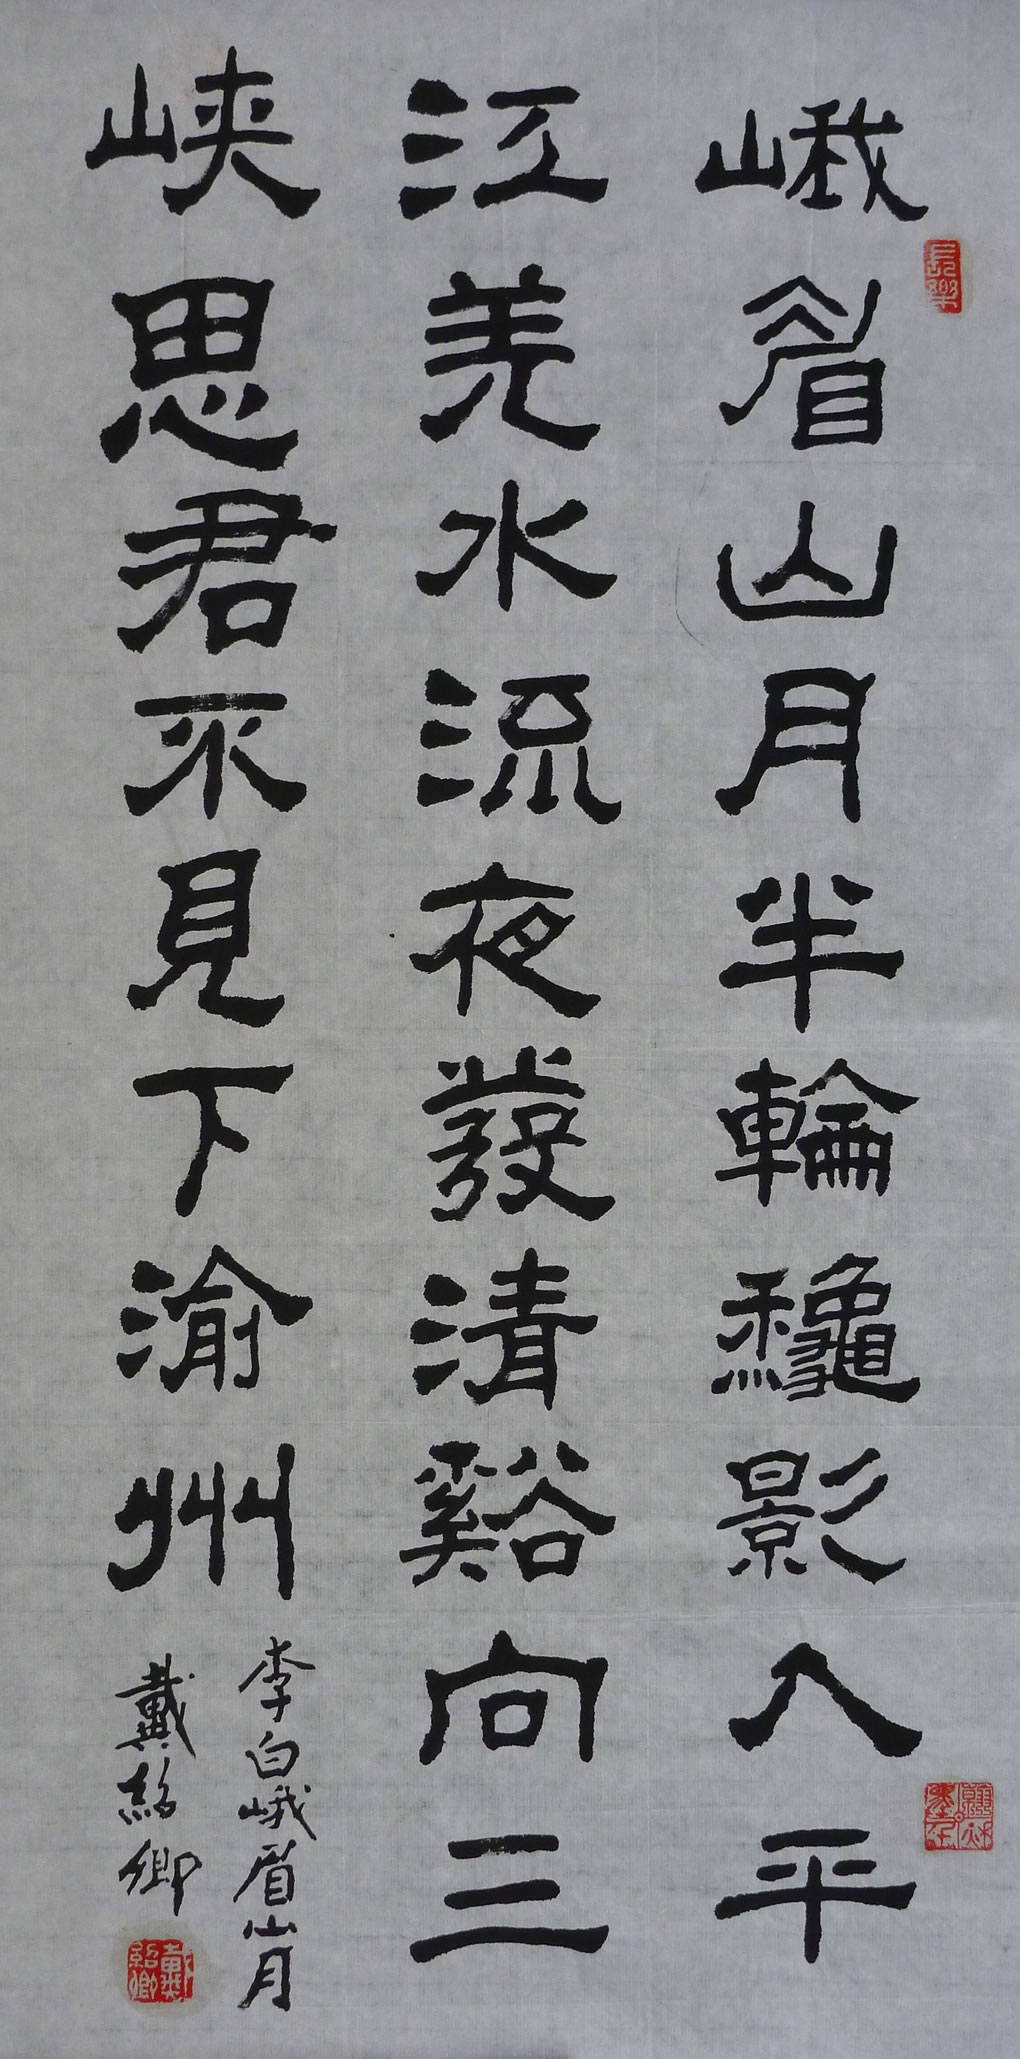 峨眉山月半輪龝影入平
江羌水流夜發清谿向三
峽思君不見下渝州
李白峨眉山月
戴紹卿
長樂
戴紹卿